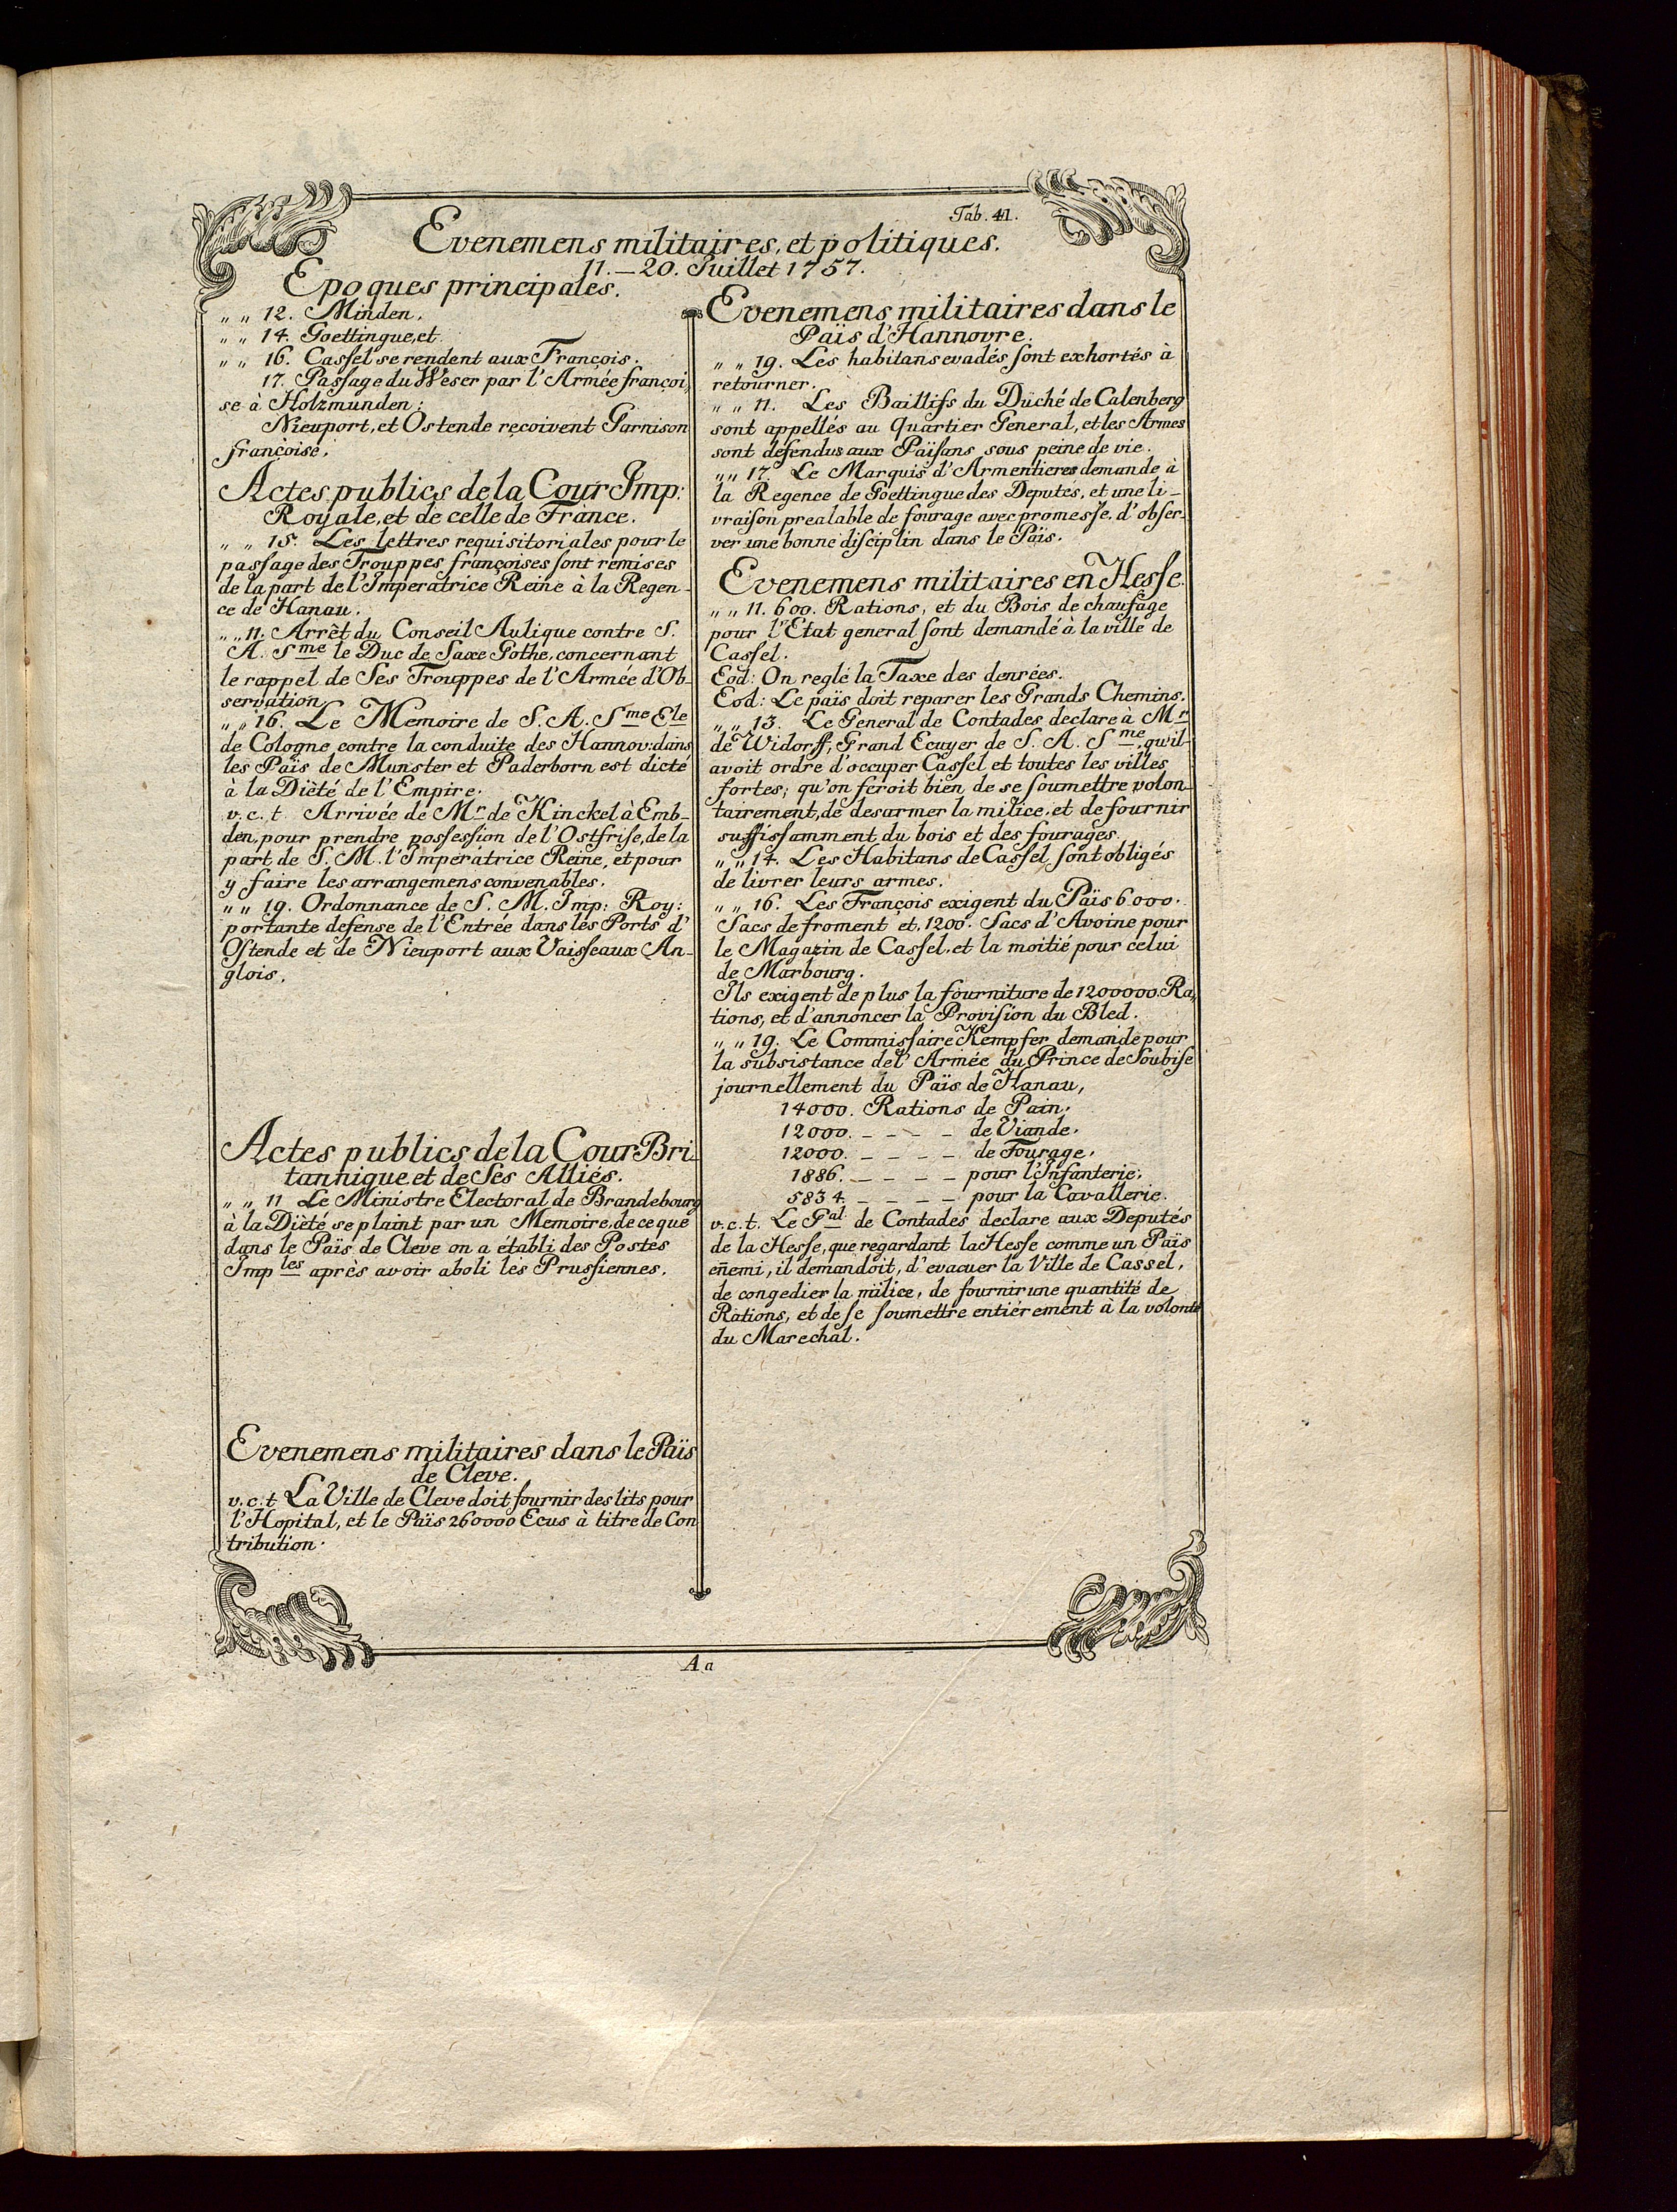 Tab. 41.
Evenemens militaires, et politiques.
11. — 20. Juillet 1757.
Epoques principales.
„ „ 12. Minden,
„ „ 14. Goettingue, et
„ „ 16. Cassel se rendent aux François.
17. Passage du Weser par l'Armée françoi„
se à Holzmunden;
Nieuport, et Ostende reçoivent Garnison
françoise.
Actes publics de la Cour Imp:
Royale, et de celle de France.
„ „ 15. Les lettres requisitoriales pour le
passage des Trouppes françoises sont remises
de la part de l'Imperatrice Reine à la Regen-
ce de Hanau.
„ „ 11. Arrêt du Conseil Aulique contre S.
A. Sme le Duc de Saxe Gothe, concernant
le rappel de Ses Trouppes de l'Armée d'Ob-
servation
„ „ 16. Le Memoire de S. A. Sme Ele
de Cologne contre la conduite des Hannov: dans
les Païs de Munster et Paderborn est dicté
à la Diète de l'Empire.
v. c. t. Arrivée de Mr de Kinckel à Emb-
den, pour prendre possession de l'Ostfrise, de la
part de S. M. l'Imperatrice Reine, et pour
y faire les arrangemens convenables.
„ „ 19. Ordonnance de S. M. Imp: Roy:
portante defense de l'Entrée dans les Ports d'
Ostende et de Nieuport aux Vaisseaux An-
glois.
Actes publics de la Cour Bri-
tannique et de Ses Alliés.
„ „ 11 Le Ministre Electoral de Brandebourg
à la Diète, se plaint par un Memoire, de ce que
dans le Païs de Cleve on a établi des Postes
Imples après avoir aboli les Prussiennes.
Evenemens militaires dans le Païs
de Cleve.
v. c. t La Ville de Cleve doit fournir des lits pour
l'Hopital, et le Païs 260000 Ecus à titre de Con
tribution.
Evenemens militaires dans le
Païs d'Hannovre.
„ „ 19. Les habitans evadés sont exhortés à
retourner.
„ „ 11. Les Baillifs du Düché de Calenberg
sont appellés au Quartier General, et les Armes
sont defendus aux Païsans sous peine de vie.
„ „ 17. Le Marquis d'Armentieres demande à
la Regence de Goettingue des Deputés, et une li-
vraison prealable de fourage avec promesse, d'obser-
ver une bonne disciplin dans le Païs.
Evenemens militaires en Hesse.
„ „ 11. 600. Rations, et du Bois de chaufage
pour l'Etat general sont demandé à la ville de
Cassel.
Eod: On reglé la Taxe des denrées.
Eod: Le païs doit reparer les Grands Chemins.
„ „ 13. Le General de Contades declare à Mr
de Widorff, Grand Ecuyer de S. A. Sme, qu'il-
avoit ordre d'occuper Cassel et toutes les villes
fortes; qu'on feroit bien de se soumettre volon-
tairement, de desarmer la milice, et de fournir
suffissamment du bois et des fourages.
„ „ 14. Les Habitans de Cassel sont obligés
de livrer leurs armes.
„ „ 16. Les François exigent du Païs 6000.
Sacs de froment et 1200. Sacs d'Avoine pour
le Magazin de Cassel, et la moitié pour celui
de Marbourg.
Ils exigent de plus la fourniture de 1200000. Ra„
tions, et d'annoncer la Provision du Bled.
„ „ 19. Le Commissaire Kempfer demande pour
la subsistance de l'Armée du Prince de Soubise
journellement du Païs de Hanau,
14000. Rations de Pain.
12000. - - - - de Viande.
12000. - - - - de Fourage.
1886. - - - - pour l'Infanterie.
5834. - - - - pour la Cavallerie.
v. c. t. Le Gal de Contades declare aux Deputés
de la Hesse, que regardant la Hesse comme un Païs
en̄emi, il demandoit, d'evacuer la Ville de Cassel,
de congedier la milice, de fournir une quantité de
Rations, et de se soumettre entiérement à la volonté
du Marechal.
Aa